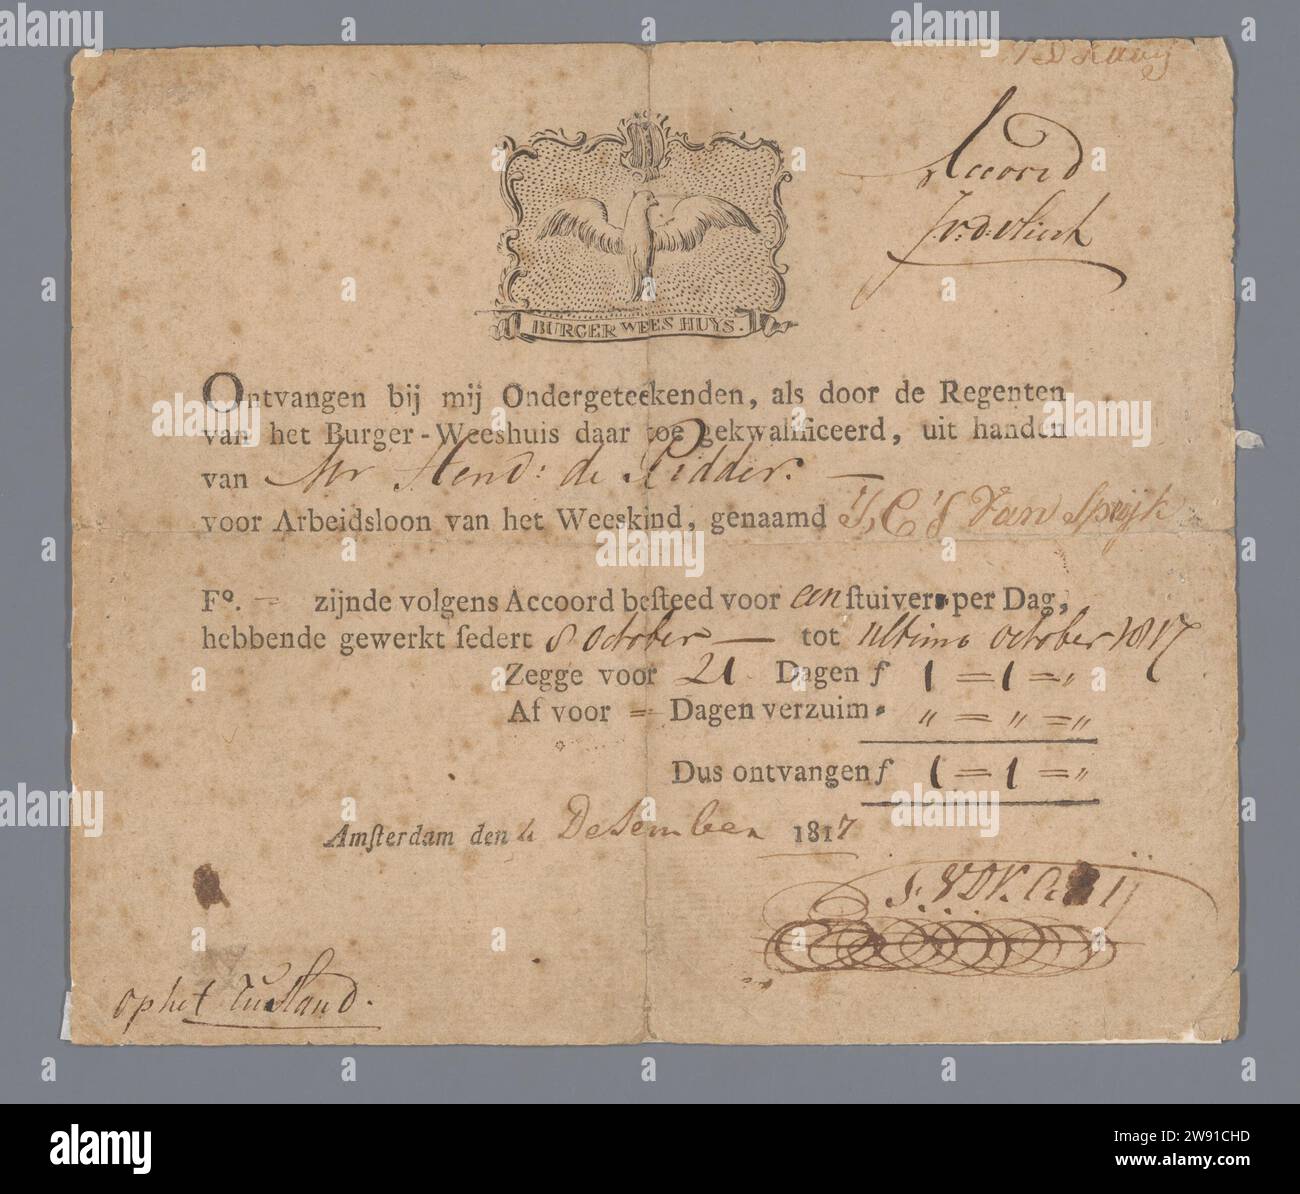 Accord
BURGER WEES HUYS.
Ontvangen bij mij Ondergeteekenden, als door de Regenten
van het Burger-Weeshuis daar toe gekwalificeerd, uit handen
van Mr Hend: de Ridder. —
voor Arbeidsloon van het Weeskind, genaamd J, C, J Van Speijk
Fo. — zijnde volgens Accoord besteed voor een stuivers per Dag,
hebbende gewerkt sedert 8 october — tot ultimo october 1817
Zegge voor 21 Dagen f 1 = 1 = "
Af voor = Dagen verzuim. " = " = "
Dus ontvangen f 1 = 1 = "
Amsterdam den 4 Desember 1817
op het
alamy
Image ID: 2W91CHD
www.alamy.com